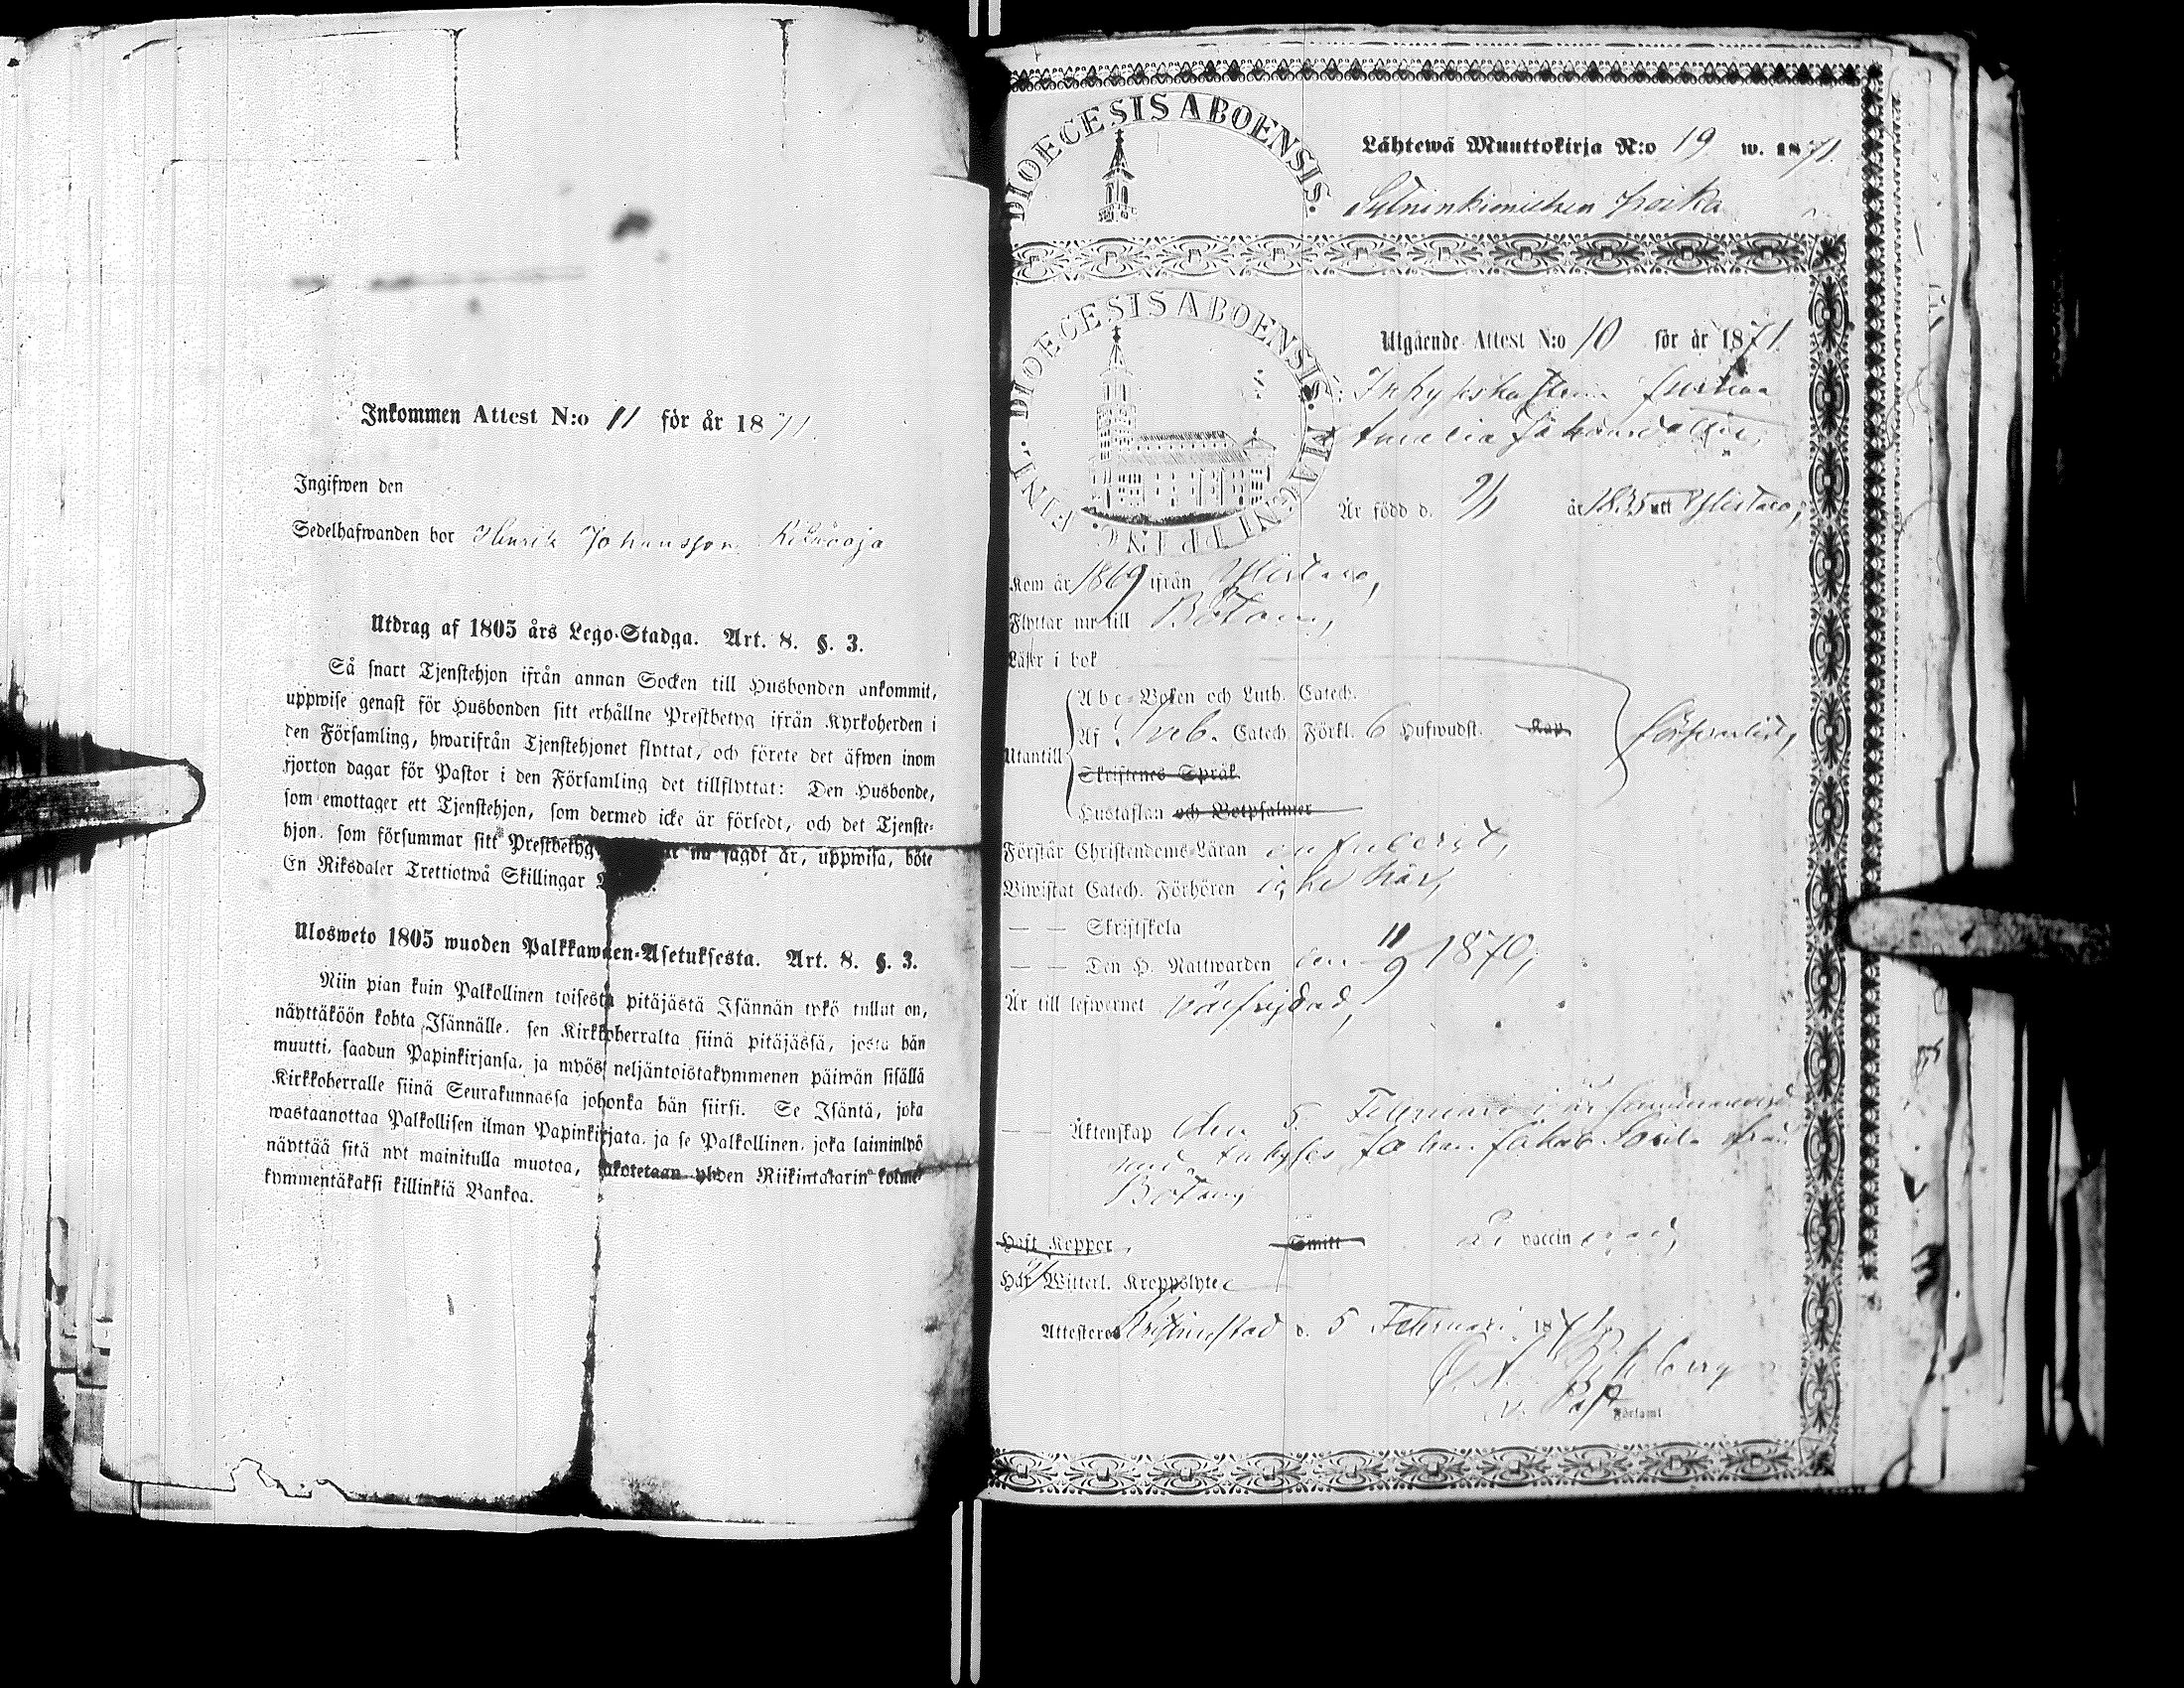 Inkommen Attest N:o 11 för år 1871.
Ingifwen den
Sedelhafwanden bor Henrik Johansson
Utdrag af 1805 års Lego-Stadga. Art. 8. §. 3.
Så snart Tjenstehjon ifrån annan Socken till Husbonden ankommit,
uppwise genast för Husbonden sitt erhållne Prestbetyg ifrån Kyrkoherden i
den Församling, hwarifrån Tjenstehjonet flyttat, och förete det äfwen inom
fjorton dagar för Pastor i den Församling det tillflyttat: Den Husbonde,
som emottager ett Tjenstehjon, som dermed icke är försedt, och det Tjenste-
hjon, som försummar sitt Prestbetyg nu sagdt är, uppwisa, böte
En Riksdaler Trettiotwå Skillingar
Ulosweto 1805 wuoden Palkkawäen-Asetuksesta. Art. 8. §. 3.
Niin pian kuin Palkollinen toisesta pitäjästä Isännän tykö tullut on,
näyttäköön kohta Isännälle, sen Kirkkoherralta siinä pitäjässä, josta hän
muutti, saadun Papinkirjansa, ja myös neljäntoistakymmenen päiwän sisällä
Kirkkoherralle siinä Seurakunnassa johonka hän siirsi. Se Isäntä, joka
wastaanottaa Palkollisen ilman Papinkirjata, ja se Palkollinen, joka laiminlyö
näyttää sitä nyt mainitulla muotoa, sakotetaan yhden Riikintalarin kolme
kymmentäkaksi killinkiä Bankoa.
DIOECESIS ABOENSIS.
Lähtewä Muuttokirja N:o 19 w. 1871.
poika
FINL. DIOECESIS ABOENSIS. MAGNI PRINC.
Utgående Attest N:o 10 för år 1871.
Inhyseshustrun
Amalia
Är född d. år 1835 uti Ylistaro,
Kom år 1869 ifrån Ylistaro,
Flyttar nu till Bötom,
Läser i bok
Utantill
Abc-Boken och Luth. Catech.
Af Sveb. Catech. Förkl. 6 Hufwudst. Kap.
försvarligt,
Skriftenes Språk
Hustaflan och Botpsalmer
Förstår Christendoms-Läran enfaldigt,
Biwistat Catech. Förhören icke här,
— — Skriftskola
— — Den H. Nattwarden den 11/9 1870,
Är till lefwernet välfrejdad,
— — Äktenskap den 5 Februari i år sammanvigd
med Inhyses Johan Jakob från
Bötom,
Haft Koppor Smitt Är vaccinerad,
Har Witterl. Kroppslyte
Attesteras Kristinestad d. 5 Februari 1871.
v. Past.
Församl